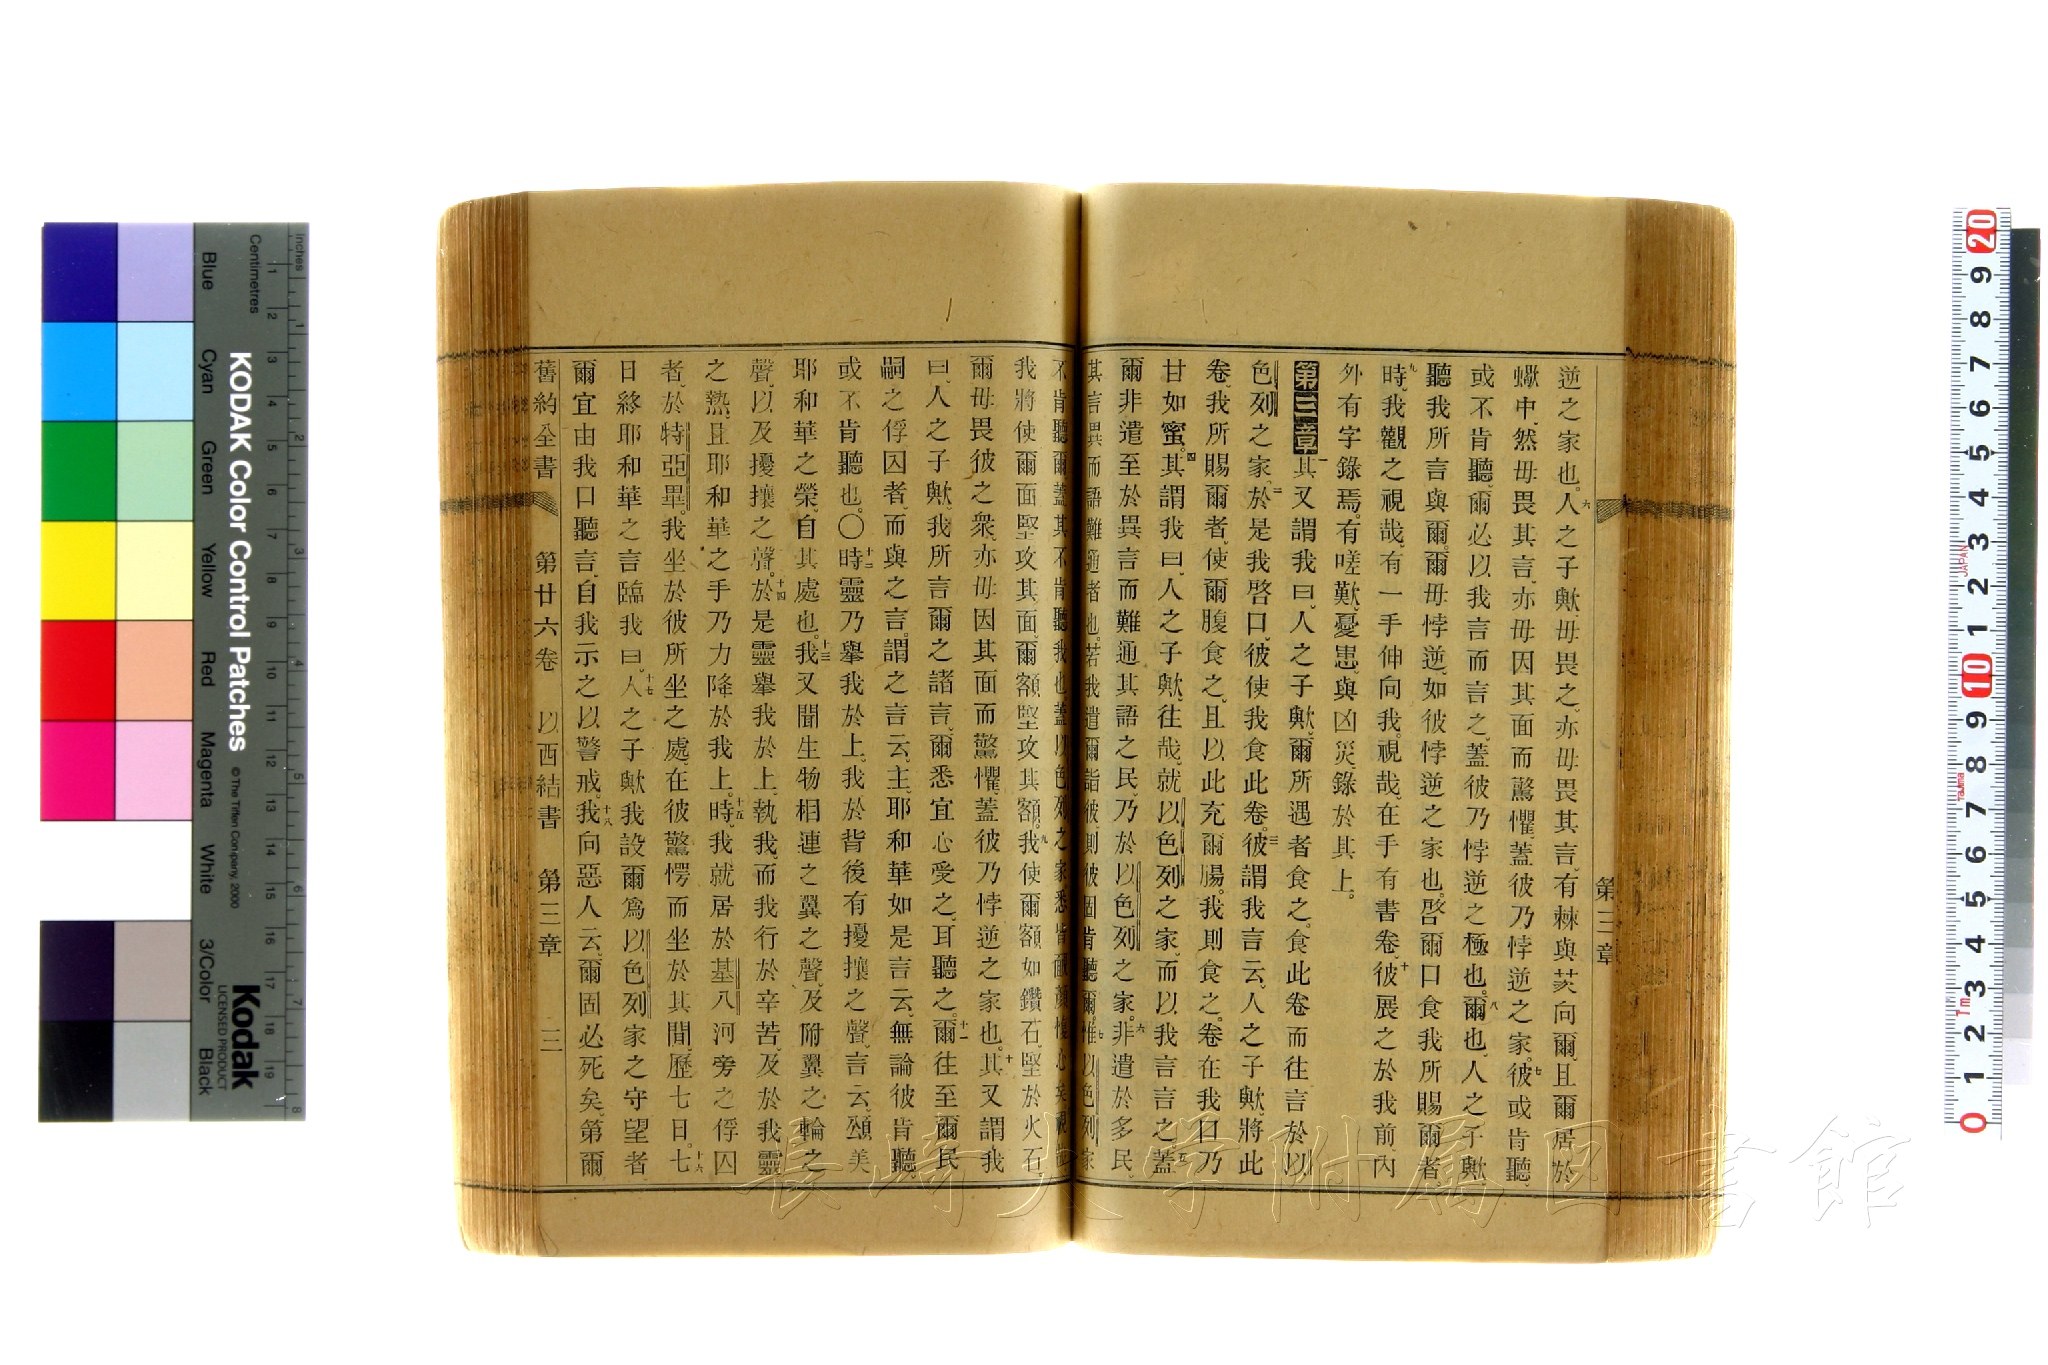 逆之家也。六人之子歟、毋畏之、亦毋畏其言、有棘與茨向爾、且爾居於
蠍中、然毋畏其言、亦毋因其面而驚懼、蓋彼乃悖逆之家。七彼或肯聽、
或不肯聽、爾必以我言而言之、蓋彼乃悖逆之極也。八爾也、人之子歟、
聽我所言與爾。爾毋悖逆、如彼悖逆之家也、啓爾口食我所賜爾者。
九時、我觀之視哉、有一手伸向我。視哉、在手有書卷、十彼展之於我前、內
外有字錄焉。有嗟歎、憂患、與凶災、錄於其上。
第三章一其又謂我曰、人之子歟、爾所遇者食之。食此卷而往言於以
色列之家、二於是我啓口、彼使我食此卷。三彼謂我言云、人之子歟、將此
卷、我所賜爾者、使爾腹食之、且以此充爾腸。我則食之。卷在我口乃
甘如蜜。四其謂我曰、人之子歟、往哉、就以色列之家、而以我言言之、五蓋
爾非遣至於異言而難通其語之民、乃於以色列之家。六非遣於多民、
其言異而語難通者也。若我遣爾詣彼、則彼固肯聽爾。七惟以色列家
不肯聽爾、蓋其不肯聽我也、蓋以色列之家悉皆
我將使爾面堅攻其面、爾額堅攻其額。九我使爾額如鑽石、堅於火石、
爾毋畏彼之衆、亦毋因其面而驚懼、蓋彼乃悖逆之家也。十其又謂我
曰、人之子歟、我所言爾之諸言、爾悉宜心受之、耳聽之。十一爾往至爾民
嗣之俘囚者、而與之言。謂之言云、主耶和華如是言云、無論彼肯聽、
或不肯聽也。〇十二時、靈乃舉我於上。我於背後有擾攘之聲、言云、頌美
耶和華之榮、自其處也。十三我又聞生物相連之翼之聲、及附翼之輪之
聲、以及擾攘之聲。十四於是靈舉我於上、執我、而我行於辛苦、及於我靈
之熱、且耶和華之手乃力降於我上。十五時、我就居於基八河旁之俘囚
者、於特亞畢。我坐於彼所坐之處、在彼驚愕而坐於其間、歷七日。十六七
日終耶和華之言臨我曰、十七人之子歟、我設爾爲以色列家之守望者、
爾宜由我口聽言、自我示之以警戒。十八我向惡人云、爾固必死矣、第爾
舊約全書　第廿六卷　以西結書　第三章　三
第三章
KODAK Color Control Patches
©The Tiffen Company, 2000
Kodak
LICENSED PRODUCT
Inches
Centimetres
Blue
Cyan
Green
Yellow
Red
Magenta
White
3/Color
Black
JAPAN
Tajima
長崎大学附属図書館